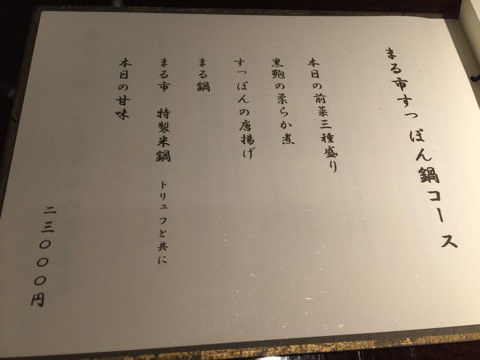 まる市すっぽん鍋コース
本日の前菜三種盛り
黒鮑の柔らか煮
すっぽんの唐揚げ
まる鍋
まる市 特製米鍋 トリュフと共に
本日の甘味
二三〇〇〇円